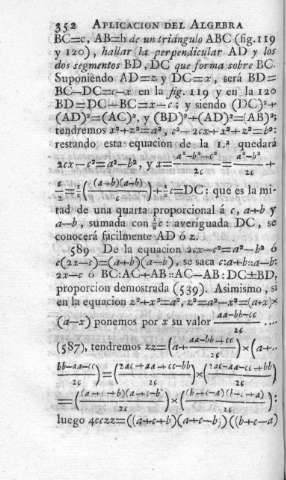 352 APLICACION DEL ALGEBRA
BC=c, AB=b de un triángulo ABC (fig. 119
y 120), hallar la perpendicular AD y los
dos segmentos BD, DC que forma sobre BC.
Suponiendo AD=z y DC=x, será BD=
BC-DC=c-x en la fig. 119 y en la 120
BD=DC-BC=x-c; y siendo (DC)²+
(AD)²=(AC)², y (BD)²+(AD)²=(AB)²;
tendremos x²+z²=a², c²-2cx+x²+z²=b²:
restando esta equacion de la 1.ª quedará
2cx-c²=a²-b², y x=(a²-b²+c²)/2c=(a²-b²)/2c+
c/2=½((a+b)(a-b)/c)+½c=DC: que es la mi-
tad de una quarta proporcional á c, a+b y
a-b, sumada con ½c: averiguada DC, se
conocerá facilmente AD ó z.
589 De la equacion 2cx-c²=a²-b² ó
c(2x-c)=(a+b)(a-b), se saca c:a+b::a-b:
2x-c ó BC:AC+AB::AC-AB:DC±BD,
proporcion demostrada (539). Asimismo, si
en la equacion z²+x²=a², z²=a²-x²=(a+x)×
(a-x) ponemos por x su valor (aa-bb+cc)/2c ....
(587), tendremos zz=(a+(aa-bb+cc)/2c)×(a+..
(bb-aa-cc)/2c)=((2ac+aa+cc-bb)/2c)×((2ac-aa-cc+bb)/2c)
=((a+c+b)(a+c-b)/2c)×((b+c-a)(b-c+a)/2c):
luego 4cczz=((a+c+b)(a+c-b))((b+c-a)